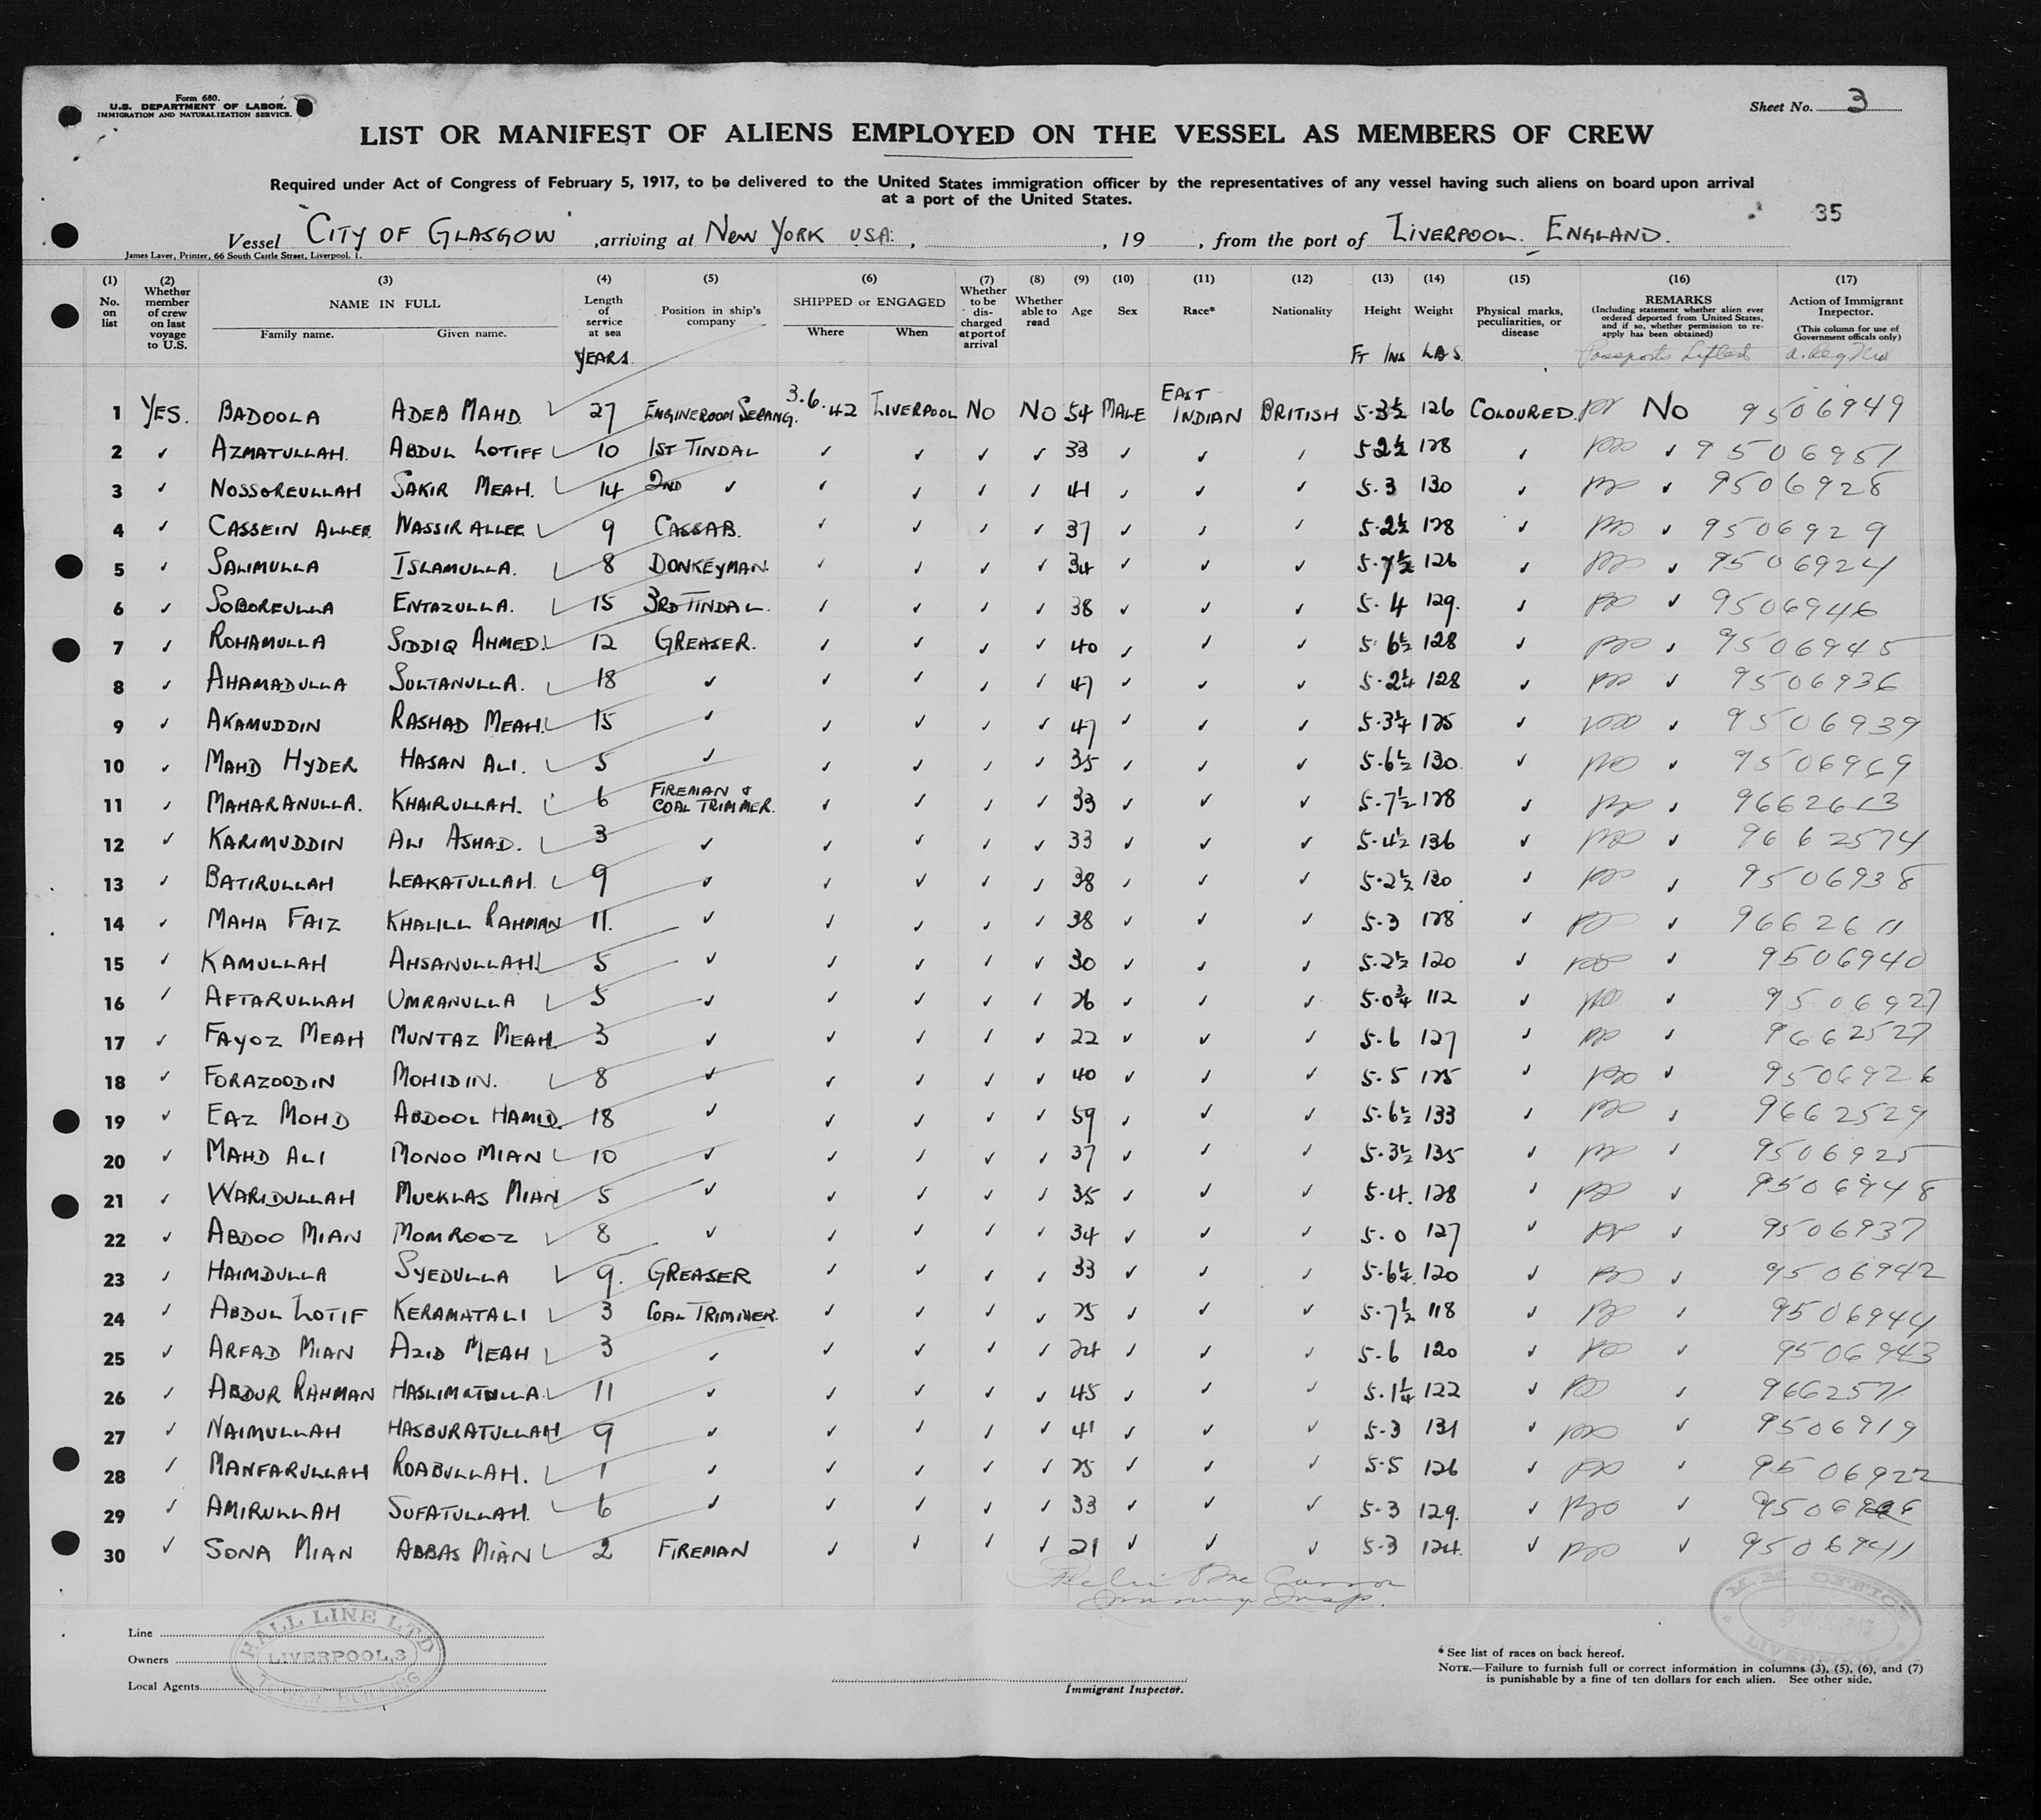 Form 680.
U.S. DEPARTMENT OF LABOR.
IMMIGRATION AND NATURALIZATION SERVICE.
Sheet No. 3
LIST OR MANIFEST OF ALIENS EMPLOYED ON THE VESSEL AS MEMBERS OF CREW
Required under Act of Congress of February 5, 1917, to be delivered to the United States immigration officer by the representatives of any vessel having such aliens on board upon arrival
at a port of the United States.
35
Vessel "CITY OF GLASGOW", arriving at NEW YORK USA., , 19 , from the port of LIVERPOOL. ENGLAND.
James Laver, Printer, 66 South Castle Street, Liverpool, 1.
(1) No. on list (2) Whether member of crew on last voyage to U.S. (3) NAME IN FULL Family name. Given name. (4) Length of service at sea YEARS. (5) Position in ship's company (6) SHIPPED or ENGAGED Where When (7) Whether to be discharged at port of arrival (8) Whether able to read (9) Age (10) Sex (11) Race* (12) Nationality (13) Height FT INS (14) Weight LBS. (15) Physical marks, peculiarities, or disease (16) REMARKS (Including statement whether alien ever ordered deported from United States, and if so, whether permission to re-apply has been obtained) Passports Lifted (17) Action of Immigrant Inspector. (This column for use of Government officials only)
1 YES. BADOOLA ADEB MAHD. 27 ENGINEROOM SERANG. 3.6.42 LIVERPOOL NO NO 54 MALE EAST INDIAN BRITISH 5.3½ 126 COLOURED. NO 9506949
2 ✓ AZMATULLAH. ABDUL LOTIFF ✓ 10 1ST TINDAL ✓ ✓ ✓ ✓ 33 ✓ ✓ ✓ 5 2½ 128 ✓ ✓ 9506951
3 ✓ NOSSOREULLAH SAKIR MEAH. ✓ 14 2ND ✓ ✓ ✓ ✓ ✓ 41 ✓ ✓ ✓ 5.3 130 ✓ ✓ 9506928
4 ✓ CASSEIN ALLEE WASSIR ALLEE ✓ 9 CASSAB. ✓ ✓ ✓ ✓ 37 ✓ ✓ ✓ 5.2½ 128 ✓ ✓ 9506929
5 ✓ SALIMULLA ISLAMULLA. ✓ 8 DONKEYMAN. ✓ ✓ ✓ ✓ 34 ✓ ✓ ✓ 5.7½ 126 ✓ ✓ 9506924
6 ✓ SOBOREULLA ENTAZULLA. ✓ 15 3RD TINDAL. ✓ ✓ ✓ ✓ 38 ✓ ✓ ✓ 5.4 129. ✓ ✓ 9506946
7 ✓ ROHAMULLA SIDDIQ AHMED. ✓ 12 GREASER. ✓ ✓ ✓ ✓ 40 ✓ ✓ ✓ 5 6½ 128 ✓ ✓ 9506945
8 ✓ AHAMADULLA SULTANULLA. ✓ 18 ✓ ✓ ✓ ✓ ✓ 47 ✓ ✓ ✓ 5.2¼ 128 ✓ ✓ 9506936
9 ✓ AKAMUDDIN RASHAD MEAH. ✓ 15 ✓ ✓ ✓ ✓ ✓ 47 ✓ ✓ ✓ 5.3¼ 125 ✓ ✓ 9506939
10 ✓ MAHD HYDER HASAN ALI. ✓ 5 ✓ ✓ ✓ ✓ ✓ 35 ✓ ✓ ✓ 5.6½ 130. ✓ ✓
11 ✓ MAHARANULLA. KHAIRULLAH. ✓ 6 FIREMAN & COAL TRIMMER. ✓ ✓ ✓ ✓ 33 ✓ ✓ ✓ 5.7½ 128 ✓ ✓ 9662613
12 ✓ KARIMUDDIN ALI ASHAD. ✓ 3 ✓ ✓ ✓ ✓ ✓ 33 ✓ ✓ ✓ 5.4½ 136 ✓ ✓ 9662574
13 ✓ BATIRULLAH LEAKATULLAH. ✓ 9 ✓ ✓ ✓ ✓ ✓ 38 ✓ ✓ ✓ 5.2½ 120 ✓ ✓ 9506938
14 ✓ MAHA FAIZ KHALILL RAHMAN 11. ✓ ✓ ✓ ✓ ✓ 38 ✓ ✓ ✓ 5.3 128 ✓ ✓ 9662611
15 ✓ KAMULLAH AHSANULLAH. ✓ 5 ✓ ✓ ✓ ✓ ✓ 30 ✓ ✓ ✓ 5.2½ 120 ✓ ✓ 9506940
16 ✓ AFTARULLAH UMRANULLA ✓ 5 ✓ ✓ ✓ ✓ ✓ 26 ✓ ✓ ✓ 5.0¾ 112 ✓ ✓ 9506927
17 ✓ FAYOZ MEAH MUNTAZ MEAH ✓ 3 ✓ ✓ ✓ ✓ ✓ 22 ✓ ✓ ✓ 5.6 127 ✓ ✓ 9662527
18 ✓ FORAZOODIN MOHIDIN. ✓ 8 ✓ ✓ ✓ ✓ ✓ 40 ✓ ✓ ✓ 5.5 125 ✓ ✓ 9506926
19 ✓ EAZ MOHD ABDOOL HAMID 18 ✓ ✓ ✓ ✓ ✓ 59 ✓ ✓ ✓ 5.6½ 133 ✓ ✓ 9662529
20 ✓ MAHD ALI MONOO MIAN ✓ 10 ✓ ✓ ✓ ✓ ✓ 37 ✓ ✓ ✓ 5.3½ 135 ✓ ✓ 9506925
21 ✓ WARIDULLAH MUCKLAS MIAN ✓ 5 ✓ ✓ ✓ ✓ ✓ 35 ✓ ✓ ✓ 5.4. 128 ✓ ✓ 9506948
22 ✓ ABDOO MIAN MOMROOZ ✓ 8 ✓ ✓ ✓ ✓ ✓ 34 ✓ ✓ ✓ 5.0 127 ✓ ✓ 9506937
23 ✓ HAIMDULLA SYEDULLA ✓ 9. GREASER ✓ ✓ ✓ ✓ 33 ✓ ✓ ✓ 5.6¼ 120 ✓ ✓ 9506942
24 ✓ ABDUL LOTIF KERAMATALI ✓ 3 COAL TRIMMER. ✓ ✓ ✓ ✓ 25 ✓ ✓ ✓ 5.7½ 118 ✓ ✓ 9506944
25 ✓ ARFAD MIAN AZID MEAH ✓ 3 ✓ ✓ ✓ ✓ ✓ 24 ✓ ✓ ✓ 5.6 120 ✓ ✓ 9506943
26 ✓ ABDUR RAHMAN HASLIMATULLA. ✓ 11 ✓ ✓ ✓ ✓ ✓ 45 ✓ ✓ ✓ 5.1¼ 122 ✓ ✓ 9662571
27 ✓ NAIMULLAH HASBURATULLAH 9 ✓ ✓ ✓ ✓ ✓ 41 ✓ ✓ ✓ 5.3 131 ✓ ✓ 9506919
28 ✓ MANFARULLAH ROABULLAH. ✓ 1 ✓ ✓ ✓ ✓ ✓ 25 ✓ ✓ ✓ 5.5 126 ✓ ✓ 9506922
29 ✓ AMIRULLAH SUFATULLAH. ✓ 6 ✓ ✓ ✓ ✓ ✓ 33 ✓ ✓ ✓ 5.3 129. ✓ ✓
30 ✓ SONA MIAN ABBAS MIAN ✓ 2 FIREMAN ✓ ✓ ✓ ✓ 21 ✓ ✓ ✓ 5.3 124. ✓ ✓ 9506941
Line
Owners
Local Agents
HALL LINE LTD
LIVERPOOL, 3
TOWER BUILDING
Immigrant Inspector.
M.M. OFFICE
LIVERPOOL
* See list of races on back hereof.
NOTE.—Failure to furnish full or correct information in columns (3), (5), (6), and (7)
is punishable by a fine of ten dollars for each alien. See other side.